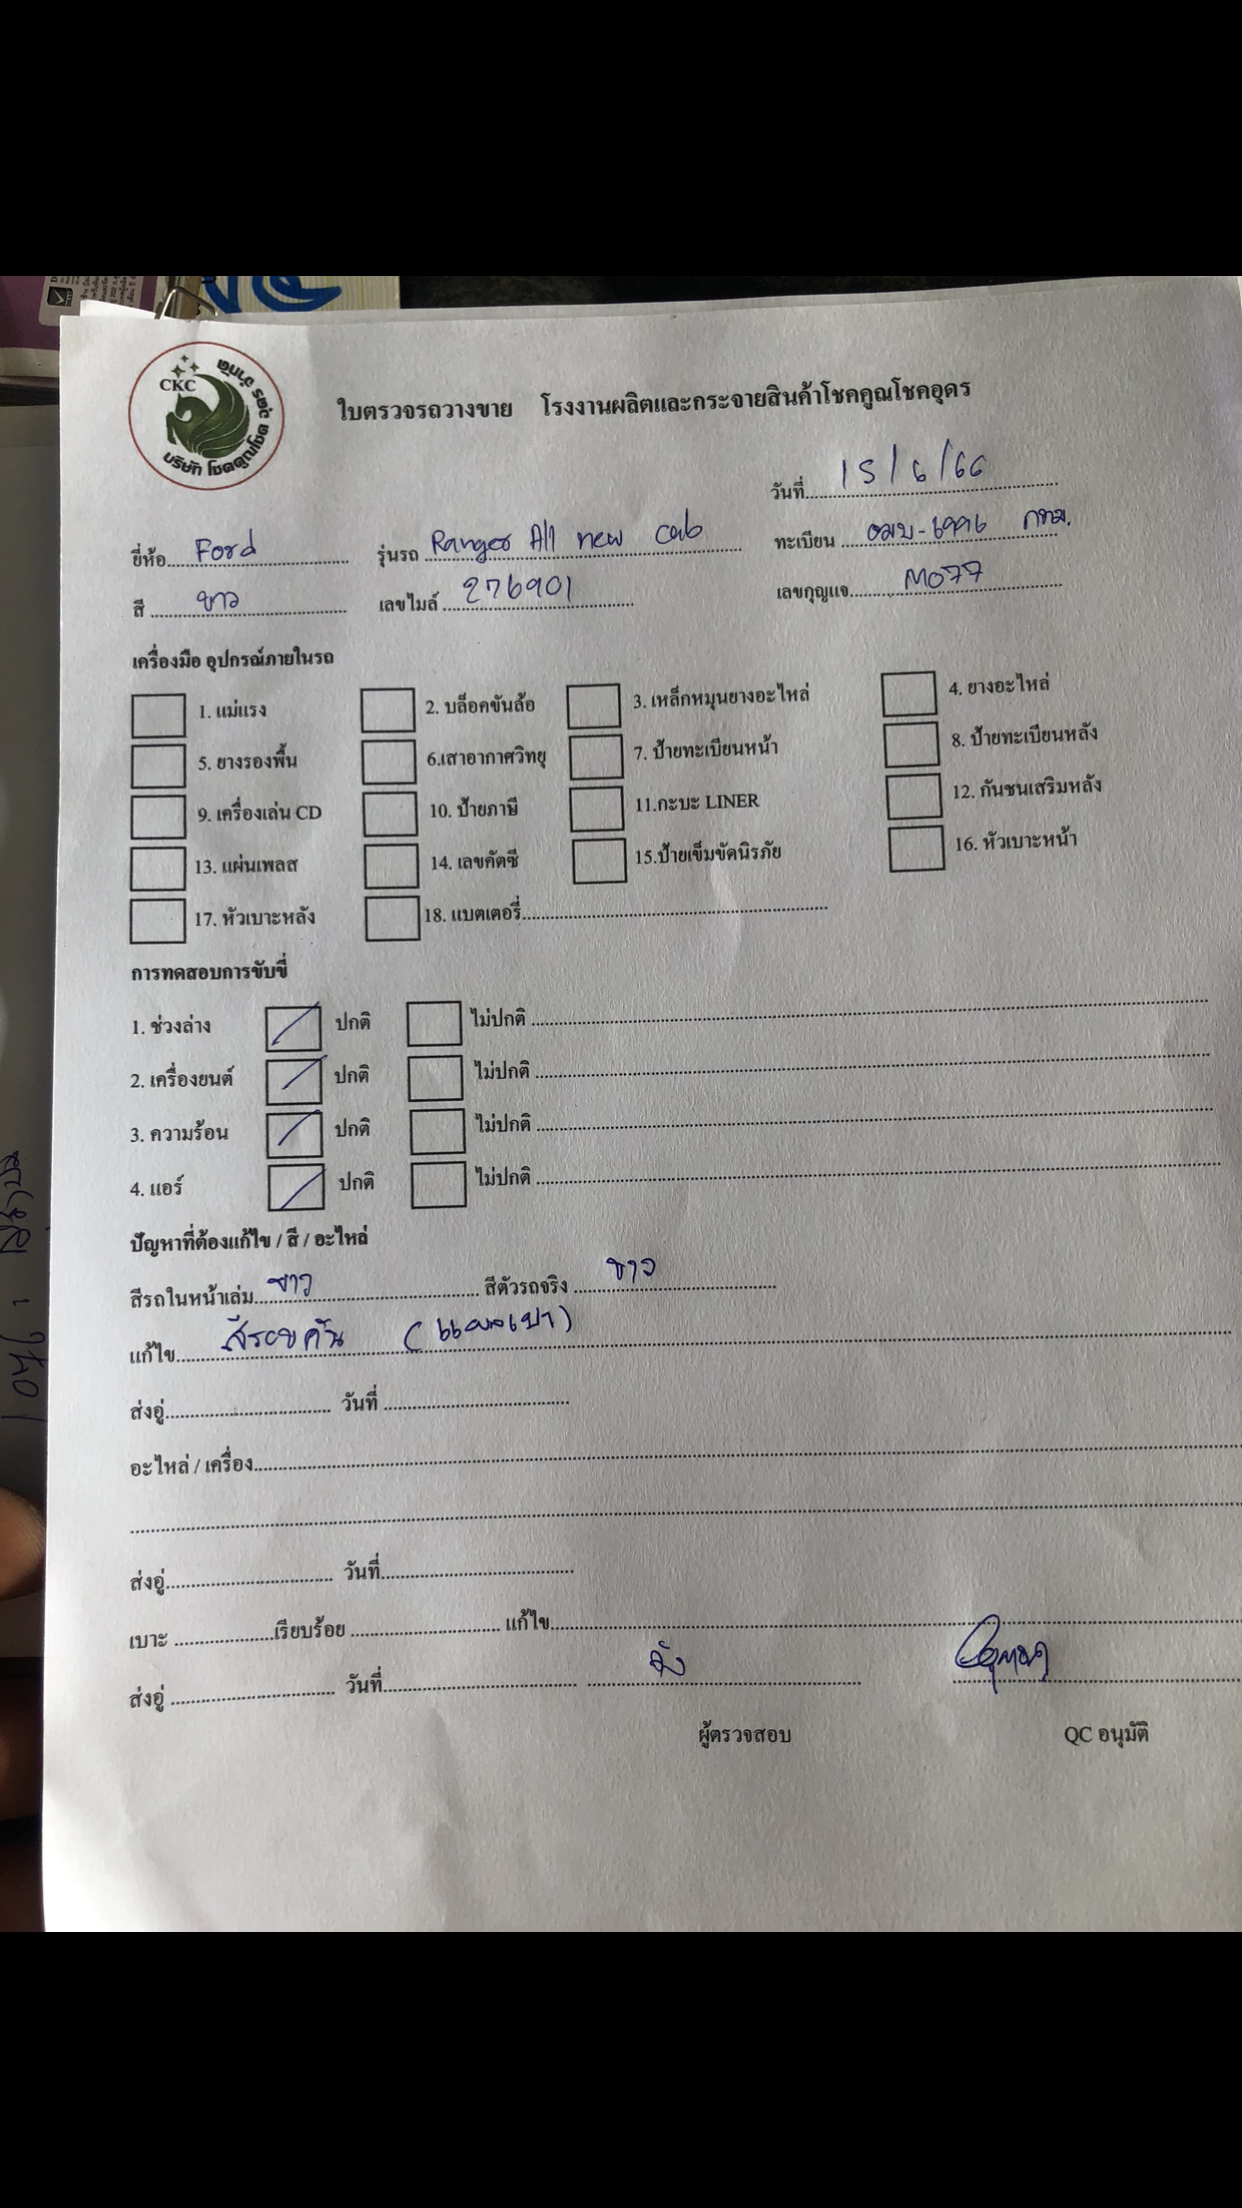 CKC
บริษัท โชคคูณโชค อุดร จำกัด
ใบตรวจรถวางขาย โรงงานผลิตและกระจายสินค้าโชคคูณโชคอุดร
วันที่ 15/6/66
ยี่ห้อ Ford รุ่นรถ Ranger All new cab ทะเบียน -6996 กทม.
สี ขาว เลขไมล์ 276901 เลขกุญแจ M077
เครื่องมือ อุปกรณ์ภายในรถ
1. แม่แรง 2. บล็อคขันล้อ 3. เหล็กหมุนยางอะไหล่ 4. ยางอะไหล่
5. ยางรองพื้น 6.เสาอากาศวิทยุ 7. ป้ายทะเบียนหน้า 8. ป้ายทะเบียนหลัง
9. เครื่องเล่น CD 10. ป้ายภาษี 11.กะบะ LINER 12. กันชนเสริมหลัง
13. แผ่นเพลส 14. เลขคัตซี 15.ป้ายเข็มขัดนิรภัย 16. หัวเบาะหน้า
17. หัวเบาะหลัง 18. แบตเตอรี่
การทดสอบการขับขี่
1. ช่วงล่าง ปกติ ไม่ปกติ
2. เครื่องยนต์ ปกติ ไม่ปกติ
3. ความร้อน ปกติ ไม่ปกติ
4. แอร์ ปกติ ไม่ปกติ
ปัญหาที่ต้องแก้ไข / สี / อะไหล่
สีรถในหน้าเล่ม ขาว สีตัวรถจริง ขาว
แก้ไข สีรอบคัน
ส่งอู่ วันที่
อะไหล่ / เครื่อง
ส่งอู่ วันที่
เบาะ เรียบร้อย แก้ไข
ส่งอู่ วันที่
ผู้ตรวจสอบ QC อนุมัติ